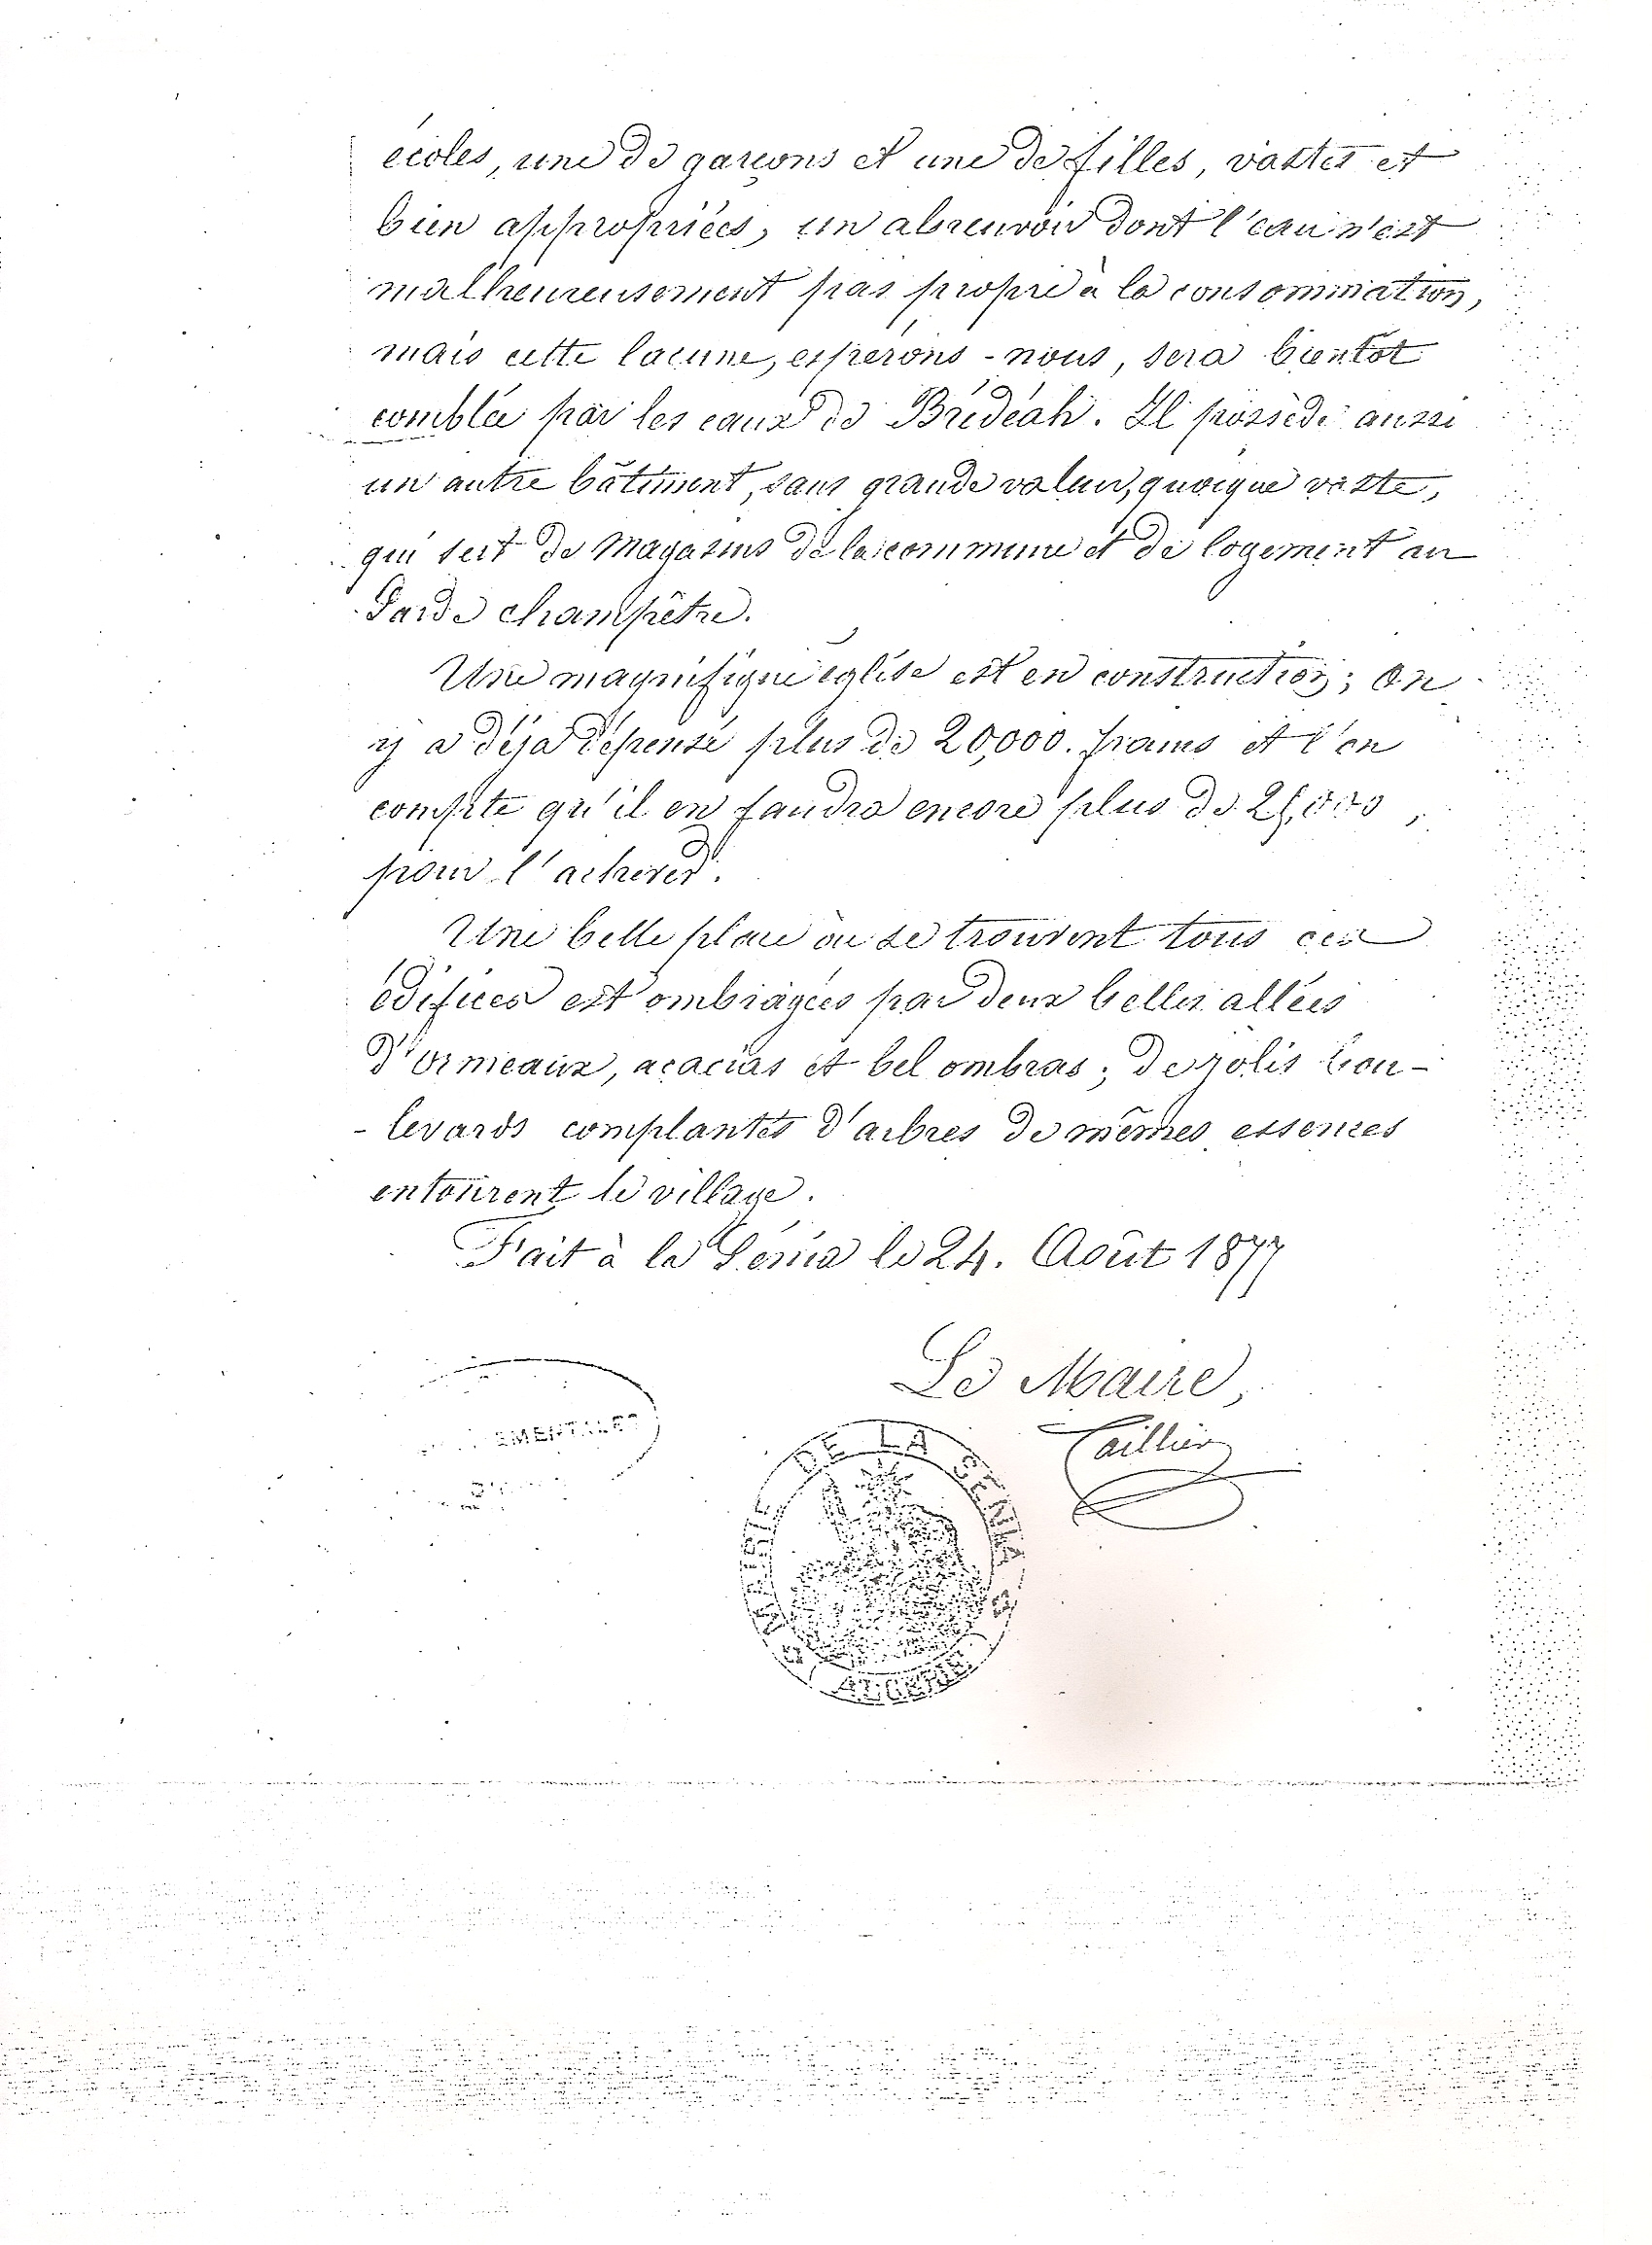 écoles, une de garçons et une de filles, vastes et
bien appropriées, un abreuvoir dont l'eau n'est
malheureusement pas propre à la consommation,
mais cette lacune, espérons-nous, sera bientôt
comblée par les eaux de Brédéah. Il possède aussi
un autre bâtiment, sans grande valeur, quoique vaste,
qui sert de Magasins de la commune et de logement au
Garde champêtre.
Une magnifique église est en construction; On
y a déjà dépensé plus de 20,000. francs et l'on
compte qu'il en faudra encore plus de 25,000,
pour l'achever.
Une belle place où se trouvent tous ces
édifices est ombragées par deux belles allées
d'ormeaux, acacias et bel ombras; de jolis bou-
-levards complantés d'arbres de mêmes essences
entourent le village.
Fait à la Sénia le 24. Août 1877
Le Maire,
Taillier
MAIRIE DE LA SENIA
ALGERIE